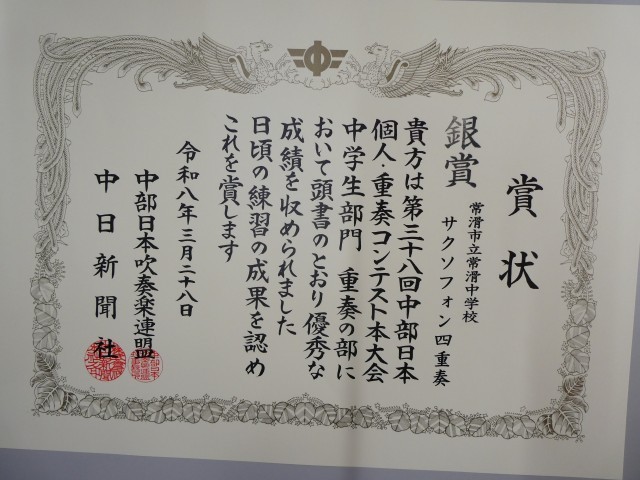 賞状
常滑市立常滑中学校
サクソフォン四重奏
銀賞
貴方は第三十八回中部日本
個人・重奏コンテスト本大会
中学生部門 重奏の部に
おいて頭書のとおり優秀な
成績を収められました
日頃の練習の成果を認め
これを賞します
令和八年三月二十八日
中部日本吹奏楽連盟
中日新聞社